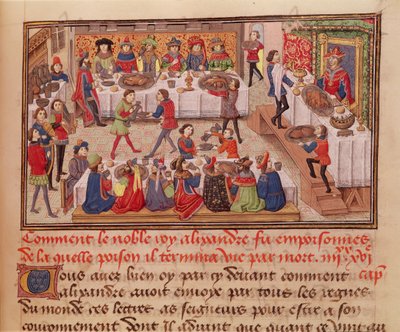 Comment le noble roy alixandre fu empoisonnes
de la quelle poison il termina vie par mort. iiijxx xvi
Vous avez bien oy par cy devant comment capl
alixandre avoit envoye par tous les regnes
du monde ces lettres as seigneurs pour estre a son
couronnement dont il advint que quant